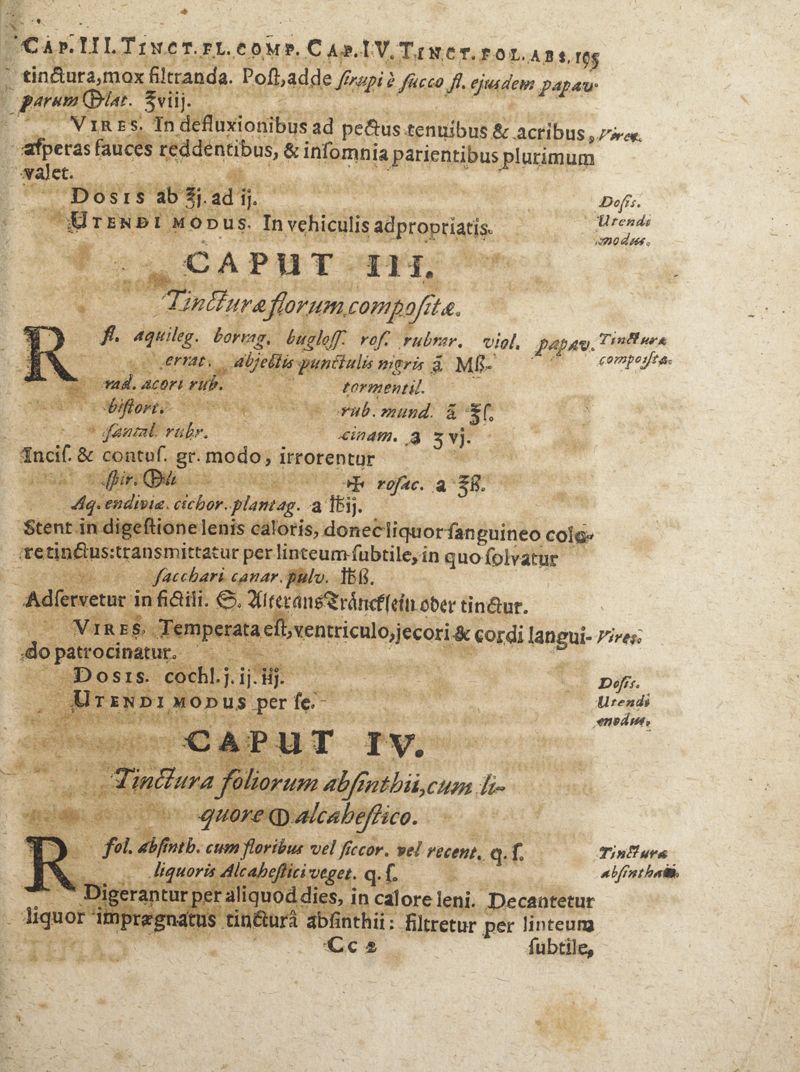 CAP. III. TINCT. FL. COMP. CAP. IV. TINCT. FOL. ABS. 195
tinctura, mox filtranda. Post, adde sirupi è succo fl. ejusdem papav-
parum lat. ℥viij.
VIRES. In defluxionibus ad pectus tenuibus & acribus, Vires.
asperas fauces reddentibus, & insomnia parientibus plurimum
valet.
DOSIS ab ℥j. ad ij. Dosis.
UTENDI MODUS. In vehiculis adpropriatis. Utendi
modus.
CAPUT III.
Tincturæ florum compositæ.
℞ fl. aquileg. borrag. bugloss. ros. rubrar. viol. papav. Tinctura
errat. abjectis punctulis nigris ā Mß. composita.
rad. acori rub. tormentil.
bistort. rub. mund. ā ℥ſ.
santal. rubr. cinam. ā ʒ vj.
Incis. & contus. gr. modo, irrorentur
spir. ✠ rosac. a ℥ß.
Aq. endiviæ. cichor. plantag. a ℔ij.
Stent in digestione lenis caloris, donec liquor sanguineo colo-
re tinctus: transmittatur per linteum subtile, in quo solvatur
sacchari canar. pulv. ℔ß.
Adservetur in fictili. S. Alterans Tråncklein oder tinctur.
VIRES. Temperata est, ventriculo, jecori & cordi langui- Vires.
do patrocinatur.
DOSIS. cochl. j. ij. iij. Dosis.
UTENDI MODUS per se. Utendi
modus.
CAPUT IV.
Tinctura foliorum absinthii, cum li-
quore alcahestico.
℞ fol. absinth. cum floribus vel siccor. vel recent. q. s. Tinctura
liquoris Alcahestici veget. q. s. absinthaii.
Digerantur per aliquod dies, in calore leni. Decantetur
liquor imprægnatus tincturâ absinthii: filtretur per linteum
Cc 2 subtile,